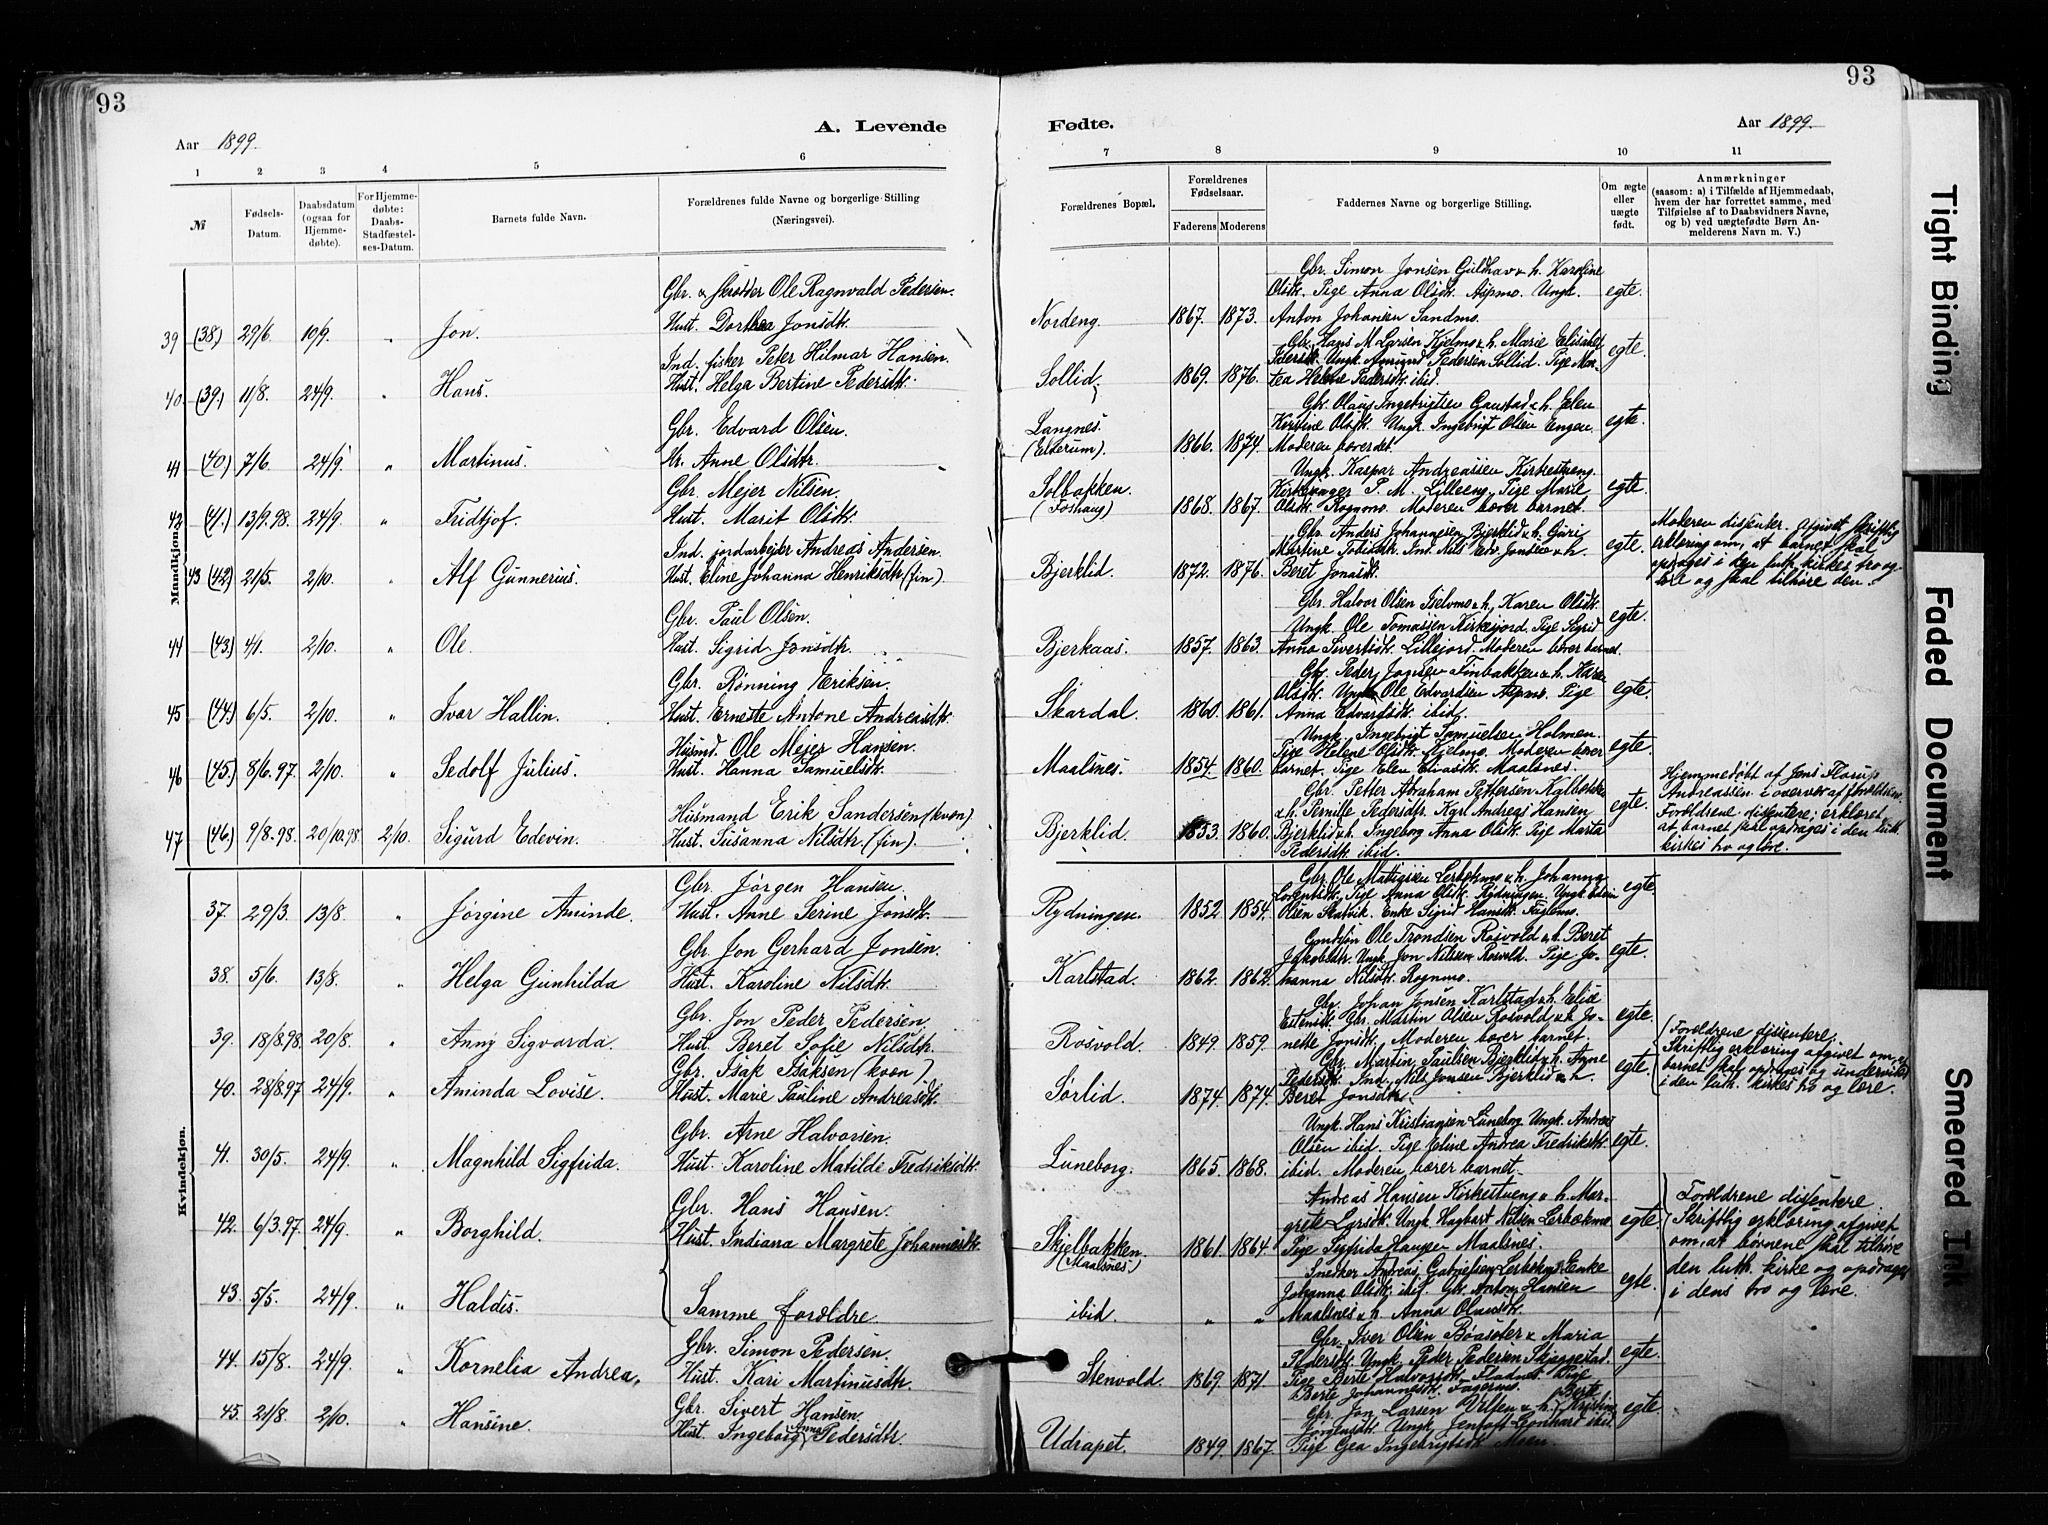 93
93
A. Levende
Fødte.
Aar 1899.
Aar 1899.
1 2 3 4 5 6
7 8 9 10 11
№
Fødsels-Datum.
Daabsdatum (ogsaa for Hjemme-døbte).
For Hjemme-døbte: Daabs-Stadfæstel-ses-Datum.
Barnets fulde Navn.
Forældrenes fulde Navne og borgerlige Stilling
(Næringsvei).
Forældrenes Bopæl.
Forældrenes Fødselsaar.
Faderens Moderens
Faddernes Navne og borgerlige Stilling.
Om ægte eller uægte født.
Anmærkninger
(saasom: a) i Tilfælde af Hjemmedaab,
hvem der har forrettet samme, med
Tilføielse af to Daabsvidners Navne,
og b) ved uægtefødte Børn An-
melderens Navn m. V.)
Mandkjøn.
39 (38) 29/6. 10/9. " Jon.
Gbr. & skrædder Ole Ragnvald Pedersen.
Hust. Dorthea Jonsdtr.
Nordeng. 1867. 1873.
Gbr. Simon Jonsen Guldhav & h. Karoline
Olsdtr. Pige Anna Olsdtr. Aspmo. Ungk.
Anton Johansen Sandmo.
egte.
40. (39.) 11/8. 24/9. " Hans.
Ind. fisker Peter Hilmar Hansen.
Hust. Helga Bertine Pedersdtr.
Sollid. 1869. 1876.
Gbr. Hans M. Larsen Kjelmo & h. Marie Elisabet
Pedersdtr. Ungk. Amund Pedersen Sollid. Pige
Helene Pedersdtr. ibid.
egte.
41 (40.) 7/6. 24/9. " Martinus.
Gbr. Edvard Olsen.
H. Anne Olsdtr.
Langnes.
(Elverum). 1866. 1874.
Gbr. Olaus Ingebrigtsen Gaustad & h. Elen
Kerstine Olsdtr. Ungk. Ingebrigt Olsen Engen.
Moderen bærer det.
egte.
42 (41.) 13/9.98. 24/9. " Fridtjof.
Gbr. Mejer Nilsen.
Hust. Marit Olsdtr.
Solbakken.
(Foshaug) 1868. 1867.
Ungk. Kaspar Andreassen Kirkestueng.
Kirkesanger P. M. Lilleeng. Pige Marie
Olsdtr. Rognmo. Moderen bærer barnet.
egte.
43 (42) 21/5. 2/10. Alf Gunnerius.
Ind. jordarbejder Andreas Andersen
Hust. Eline Johanna Henriksdtr (fin).
Bjerklid. 1872. 1876.
Gbr. Anders Johannesen Bjerklid & h. Guri
Martine Tobiasdtr. Ind. Nils Edv. Jonsen & h.
Beret Jonasdtr.
egte.
Moderen dissenter. Afgivet skriftlig
erklæring om, at barnet skal
opdrages i den luth. kirkes tro og
lære og skal tilhøre den.
44 (43.) 4/1. 2/10. " Ole.
Gbr. Paul Olsen.
Hust. Sigrid Jonsdtr.
Bjerkaas. 1857. 1863.
Gbr. Halvor Olsen Iselvmo & h. Karen Olsdtr.
Ungk. Ole Tomassen Kirkejord. Pige Sigrid
Anna Sivertsdtr. Lillejord. Moderen bærer barnet.
egte.
45 (44.) 6/5. 2/10. " Ivar Hallin.
Gbr. Rønning Eriksen.
Hust. Erneste Antone Andreasdtr.
Skardal. 1860. 1861.
Gbr. Peder Jonsen Finbakken & h. Karen
Olsdtr. Ungk. Ole Edvardsen Aspmo. Pige
Anna Edvardsdtr. ibid.
egte.
46 (45.) 8/6.97. 2/10. " Sedolf Julius.
Husmd. Ole Mejer Hansen.
Hust. Hanna Samuelsdtr.
Maalsnes. 1854. 1860.
Ungk. Ingebrigt Samuelsen Holmen.
Pige Helene Olsdtr. Kjelmo. Moderen bærer
barnet. Pige Elen Eliasdtr. Maalsnes.
egte.
47 (46.) 9/8.98. 20/10.98 2/10. Sigurd Edevin.
Husmand Erik Sandersen (kvæn)
Hust. Susanna Nilsdtr. (fin).
Bjerklid. 1853. 1860.
Gbr. Petter Abraham Pettersen Kalbekken
& h. Pernille Pedersdtr. Karl Andreas Hansen
Bjerklid & h. Ingeborg Anna Olsdtr. Pige Marta
Pedersdtr. ibid.
egte.
Hjemmedøbt af Jens Florus
Andreassen i overvær af forældrene.
Forældrene dissentere; erklæret
at barnet skal opdrages i den luth.
kirkes tro og lære.
Kvindekjøn.
37. 29/3. 13/8. " Jørgine Aminde.
Gbr. Jørgen Hansen.
Hust. Anne Serine Jonsdtr.
Rydningen. 1852. 1854.
Gbr. Ole Mathisen Lerbækmo & h. Johanna
Lorentsdtr. Pige Anna Olsdtr. Rydningen. Ungk. Edvin
Olsen Skatvik. Enke Sigrid Hansdtr. Fuglemo.
egte.
38. 5/6. 13/8. " Helga Gunhilda
Gbr. Jon Gerhard Jonsen.
Hust. Karoline Nilsdtr.
Karlstad. 1862. 1862.
Gmdssøn Ole Trondsen Rosvold & h. Beret
Jakobsdtr. Ungk. Jon Nilsen Rosvold. Pige Jo-
hanna Nilsdtr. Rognmo.
egte.
39. 18/8.98. 20/8. " Anny Sigvarda.
Gbr. Jon Peder Pedersen.
Hust. Beret Sofie Nilsdtr.
Rosvold. 1849. 1859.
Gbr. Johan Jonsen Karlstad & h. Elise
Estensdtr. Gbr. Martin Olsen Rosvold & h. Jo-
nette Jonsdtr. Moderen bærer barnet.
egte.
40. 28/8.97 24/9. " Aminda Lovise.
Gbr. Isak Isaksen (kvæn).
Hust. Marie Pauline Andreasdtr.
Sørlid. 1874. 1874.
Gbr. Martin Paulsen Bjerklid & h. Anne
Pedersdtr. Ind. Nils Jonsen Bjerklid & h.
Beret Jonsdtr.
egte.
Forældrene dissentere;
Skriftlig erklæring afgivet om, at
barnet skal opdrages og undervises
i den luth. kirkes tro og lære.
41. 30/5. 24/9. " Magnhild Sigfrida.
Gbr. Arne Halvorsen.
Hust. Karoline Matilde Fredriksdtr.
Luneborg. 1865. 1868.
Ungk. Hans Kristiansen Luneborg. Ungk. Andreas
Olsen ibid. Pige Eline Andrea Fredriksdtr.
ibid. Moderen bærer barnet.
egte.
42. 6/3.97. 24/9. " Borghild.
Gbr. Hans Hansen.
Hust. Indiana Margrete Johannesdtr.
Skjelbakken.
(Maalsnes) 1861. 1864.
Andreas Hansen Kirkestueng & h. Mar-
grete Larsdtr. Ungk. Hagbart Nilsen Lerbækmo
Pige Sigfrida Hansen Maalsnes.
egte.
Forældrene dissentere
Skriftlig erklæring afgivet
om, at børnene skal tilhøre
den luth. kirke og opdrages
i dens tro og lære.
43. 5/5. 24/9. " Haldis.
Samme forældre.
ibid. " "
Snedker Andreas Gabrielsen Lerbækmo. Enke
Johanna Olsdtr. ibid. Gbr. Anton Hansen
Maalsnes & h. Anna Olausdtr.
egte.
44. 15/8. 24/9. " Kornelia Andrea.
Gbr. Simon Pedersen.
Hust. Kari Martinusdtr.
Stenvold. 1869. 1871.
Gbr. Iver Olsen Bøasæter & Maria
Pedersdtr. Ungk. Peder Pedersen Skjeggestad.
Pige Berte Halvorsdtr. Fladnes. Pige
Berte Johannesdtr. Fagernes.
egte.
45. 21/8. 2/10. " Hansine.
Gbr. Sivert Hansen.
Hust. Ingeborg Anna Pedersdtr.
Udrapet. 1849. 1867.
Gbr. Jon Larsen Ulfen & h. Berte Kristine
Jørgensdtr. Ungk. Jentoft Leonhart ibid.
Pige Gea Ingebrigtsdtr. Moen.
egte.
Tight Binding
Faded Document
Smeared Ink